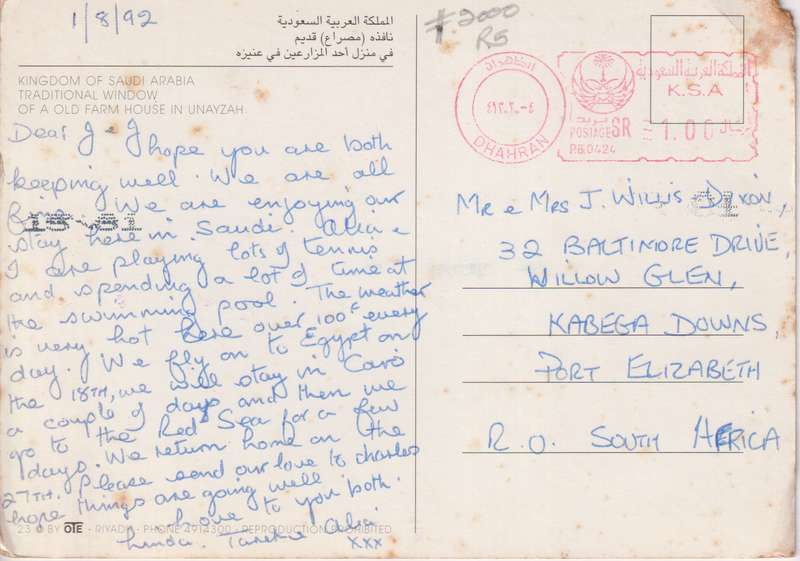 1/8/92
المملكة العربية السعودية
نافذه (مصراع) قديم
في منزل أحد المزارعين في عنيزه
KINGDOM OF SAUDI ARABIA
TRADITIONAL WINDOW
OF A OLD FARM HOUSE IN UNAYZAH
Dear J & J
I hope you are both
keeping well. We are all
We are enjoying our
stay here in Saudi.
I are playing lots of tennis
and spending a lot of time at
the swimming pool. The weather
is very hot here over 100° every
day. We fly on to Egypt on
the 18TH, we will stay in Cairo
a couple of days and then we
go to the Red Sea for a few
days. We return home on the
27TH. Please send our love to Charles
hope things are going well
Love to you both.
Linda.
xxx
23 © BY OTE - RIYADH - PHONE 4914300 - REPRODUCTION PROHIBITED
2000
RS
الظهران
DHAHRAN
بريد
POSTAGE SR
PB0424
المملكة العربية السعودية
K.S.A
1.00 ريال
Mr e Mrs J. Willis Dixon,
32 BALTIMORE DRIVE,
WILLOW GLEN,
KABEGA DOWNS,
PORT ELIZABETH
R.O. SOUTH AFRICA